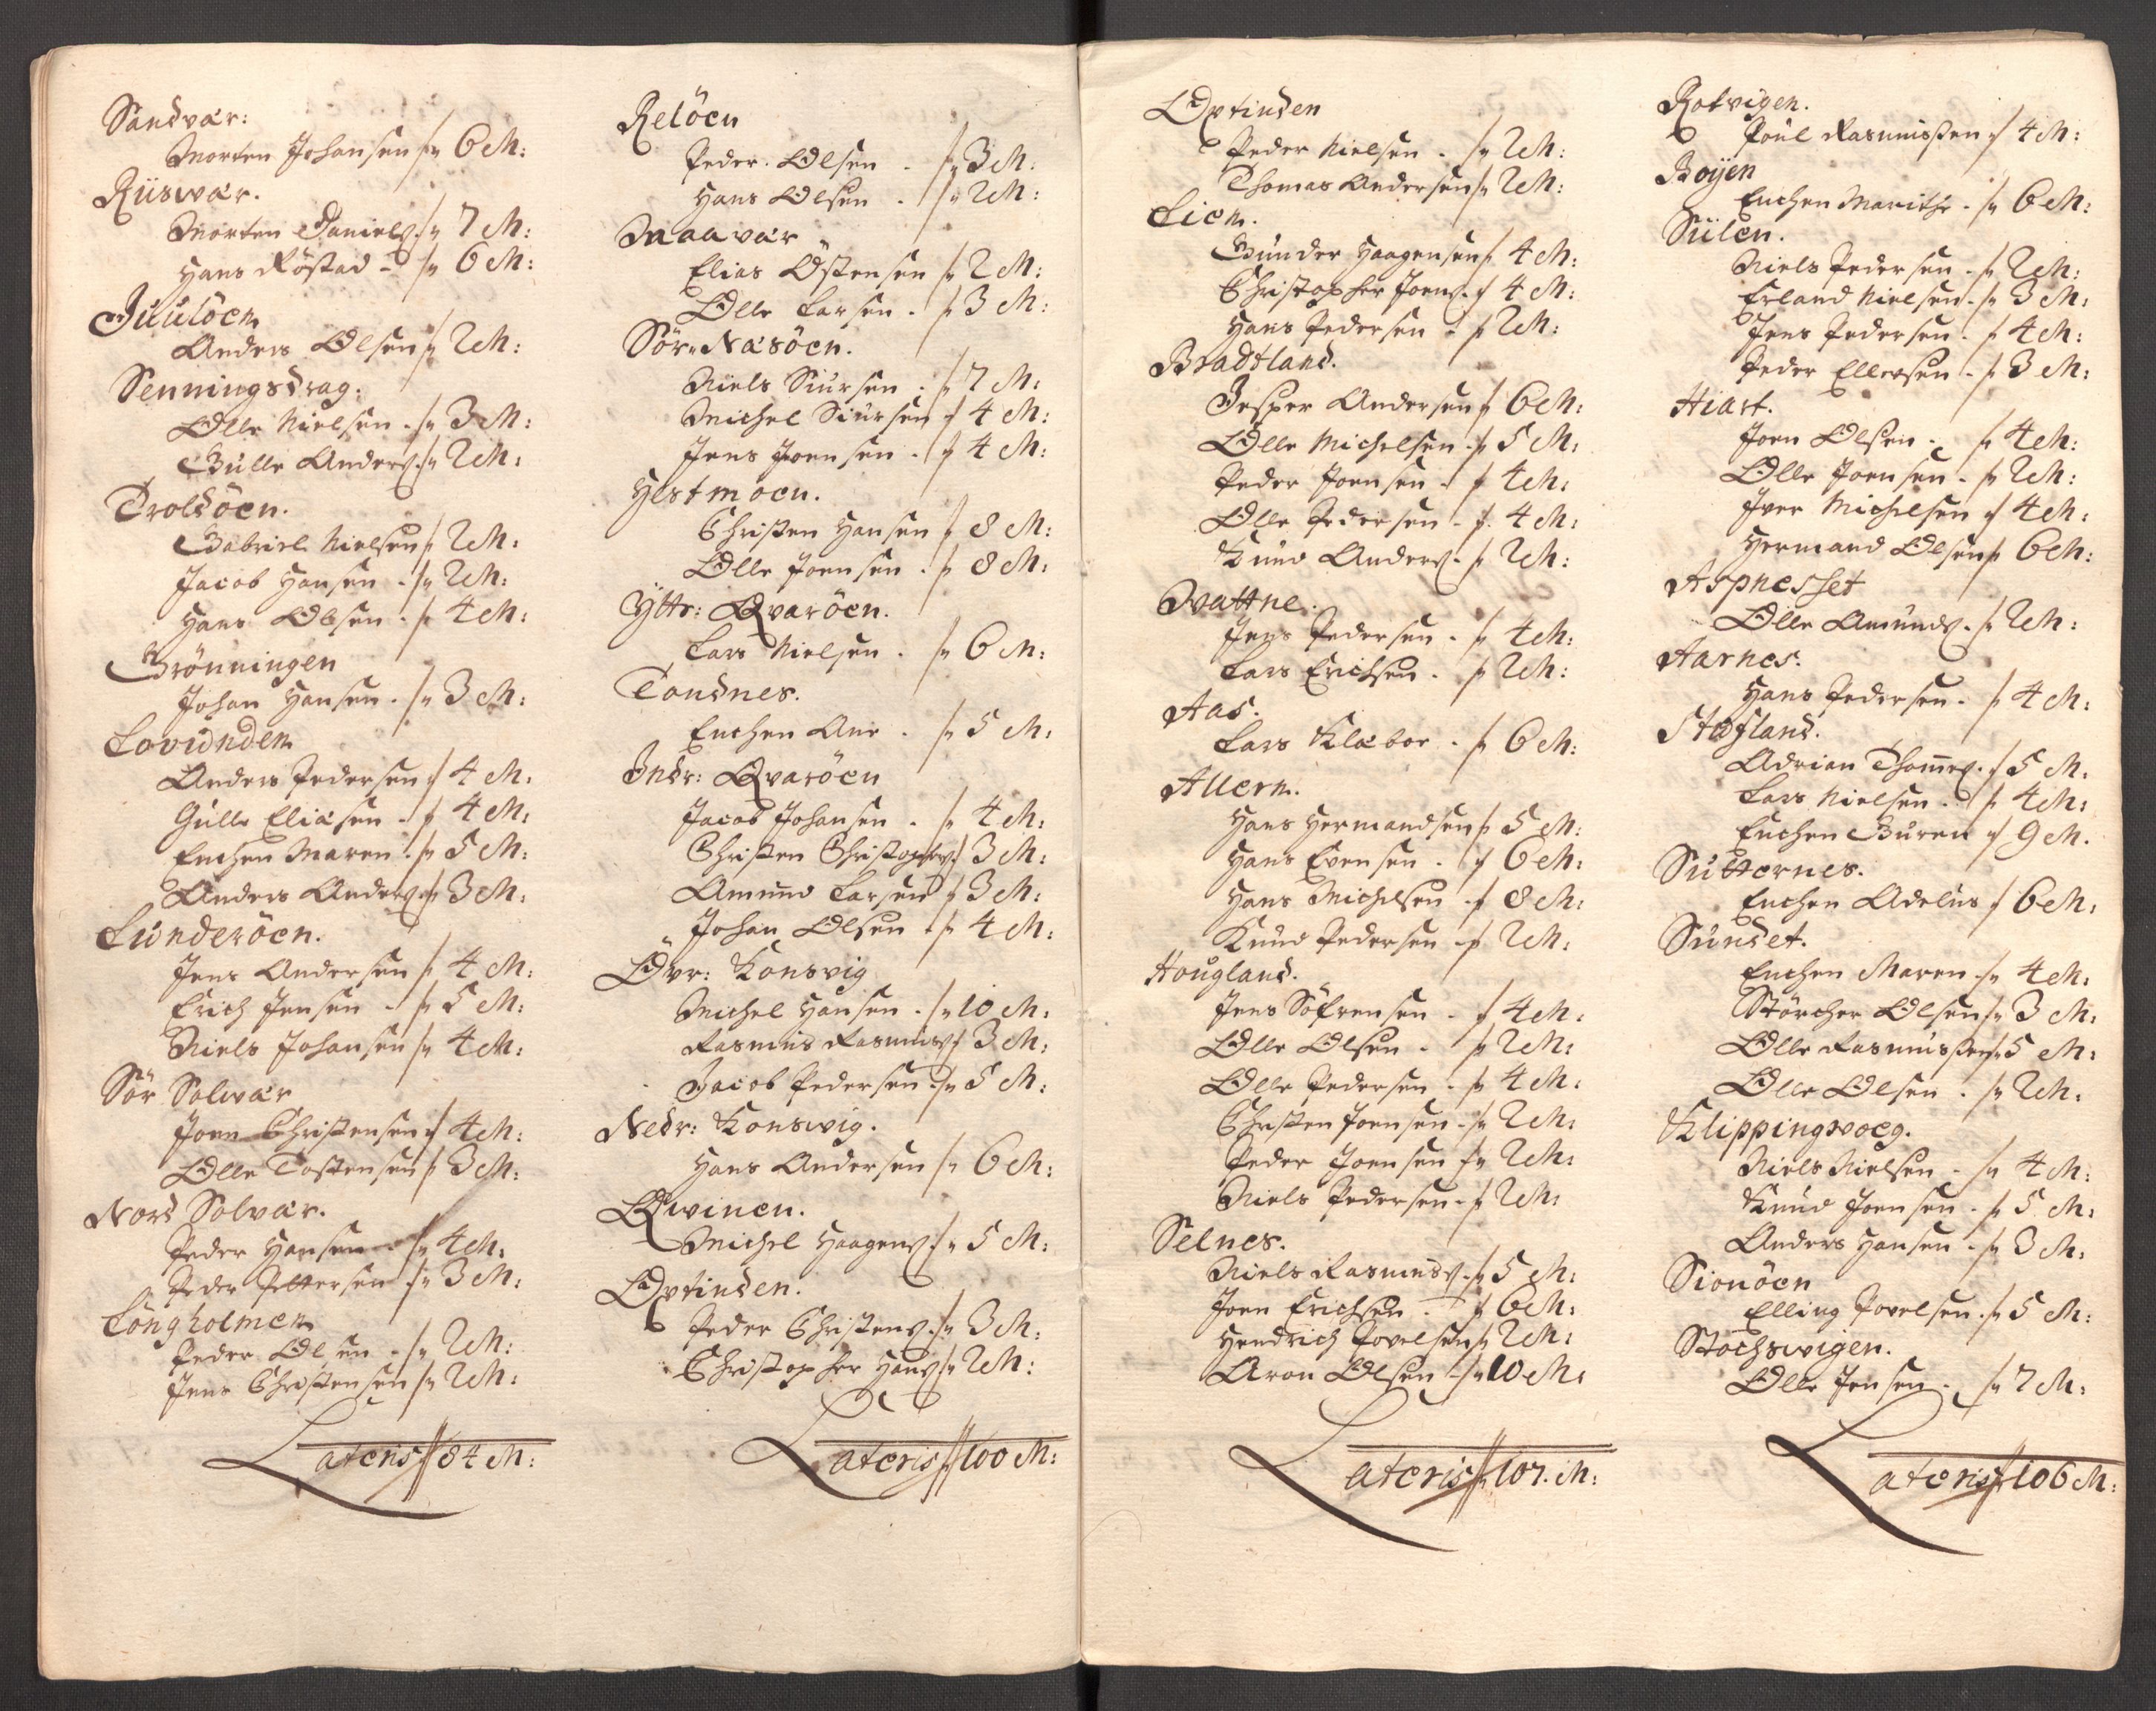 Sandvær:
Morten Johansen 6 M:
Riisvær.
Morten Daniels. 7 M:
Hans Röstad - 6 M:
Juulöen
Anders Olsen 2 M:
Senningsdrag:
Olle Nielsen - 3 M:
Gulle Anders. 2 M:
Troldöen.
Gabriel Nielsen 2 M:
Jacob Hansen - 2 M:
Hans Olsen - 4 M:
Grönningen
Johan Hansen - 3 M:
Lovunden
Anders Pedersen 4 M:
Gulle Eliasen - 4 M:
Enchen Maren - 5 M:
Anders Anders. 3 M:
Lunderöen.
Jens Andersen 4 M:
Erich Jensen - 5 M:
Niels Johansen 4 M:
Sör Solvær
Joen Christensen 4 M:
Olle Tostensen 3 M:
Nord Solvær.
Peder Hansen - 4 M:
Peder Pettersen 3 M:
Longholmen
Peder Olsen - 2 M:
Jens Christensen 2 M:
Lateris 84 M:
Relöen
Peder Olsen - 3 M:
Hans Olsen - 2 M:
Maavær
Elias Östensen 2 M:
Olle Larsen - 3 M:
Sör Næsöen.
Niels Siursen - 7 M:
Michel Siursen 4 M:
Jens Joensen - 4 M:
Hestmoen.
Christen Hansen 8 M:
Olle Joensen - 8 M:
Yttr: Qvaröen.
Lars Nielsen - 6 M:
Tondnes.
Enchen Ane - 5 M:
Indr: Qvaröen
Jacob Johansen - 4 M:
Christen Christophers. 3 M:
Amund Larsen 3 M:
Johan Olsen - 4 M:
Övr: Konsvig
Michel Hansen - 10 M:
Rasmus Rasmus. 3 M:
Jacob Pedersen - 5 M:
Nedr: Konsvig.
Hans Andersen 6 M:
Qvinen.
Michel Haagens. 5 M:
Öxtinden.
Peder Christens. 3 M:
Christopher Hans. 2 M:
Lateris 100 M:
Öxtinden
Peder Nielsen - 2 M:
Thomas Andersen 2 M:
Lien.
Gunder Haagensen 4 M:
Christopher Joens. 4 M:
Hans Pedersen - 2 M:
Bradtland.
Jesper Andersen 6 M:
Olle Michelsen - 5 M:
Peder Joensen - 4 M:
Olle Pedersen - 4 M:
Knud Anders. 2 M:
Vattne.
Jens Pedersen - 4 M:
Lars Erichsen - 2 M:
Aas.
Lars Klæboe - 6 M:
Alleren.
Hans Hermandsen 5 M:
Hans Evensen - 6 M:
Hans Michelsen - 8 M:
Knud Pedersen - 2 M:
Hougland.
Jens Söfrensen - 4 M:
Olle Olsen - 2 M:
Olle Pedersen - 4 M:
Christen Joensen - 2 M:
Peder Joensen 2 M:
Niels Pedersen - 2 M:
Selnes.
Niels Rasmus. 5 M:
Joen Erichsen - 6 M:
Hendrich Povelsen 2 M:
Aron Olsen - 10 M:
Lateris 107. M:
Rotvigen.
Poul Rasmussen 4 M:
Boÿen
Enchen Marithe - 6 M:
Sulen.
Niels Pedersen - 2 M:
Erland Nielsen - 3 M:
Jens Pedersen - 4 M:
Peder Ellevsen - 3 M:
Hiart.
Joen Olsen - 4 M:
Olle Joensen - 2 M:
Iver Michelsen 4 M:
Hermand Olsen 6 M:
Aspnesset
Olle Amunds. 2 M:
Aarnes.
Hans Pedersen - 4 M:
Stafland.
Adrian Thomes. 5 M:
Lars Nielsen - 4 M:
Enchen Buren 9 M.
Sutternes.
Enchen Adelus 6 M:
Sundet.
Enchen Maren - 4 M:
Störcher Olsen 3 M:
Olle Rasmussen 5 M:
Olle Olsen - 2 M:
Klippingvoeg.
Niels Nielsen - 4 M:
Knud Joensen - 5 M:
Anders Hansen - 3 M:
Sionöen
Elling Povelsen - 5 M:
Stochsvigen.
Olle Jensen - 7 M:
Lateris 106 M: